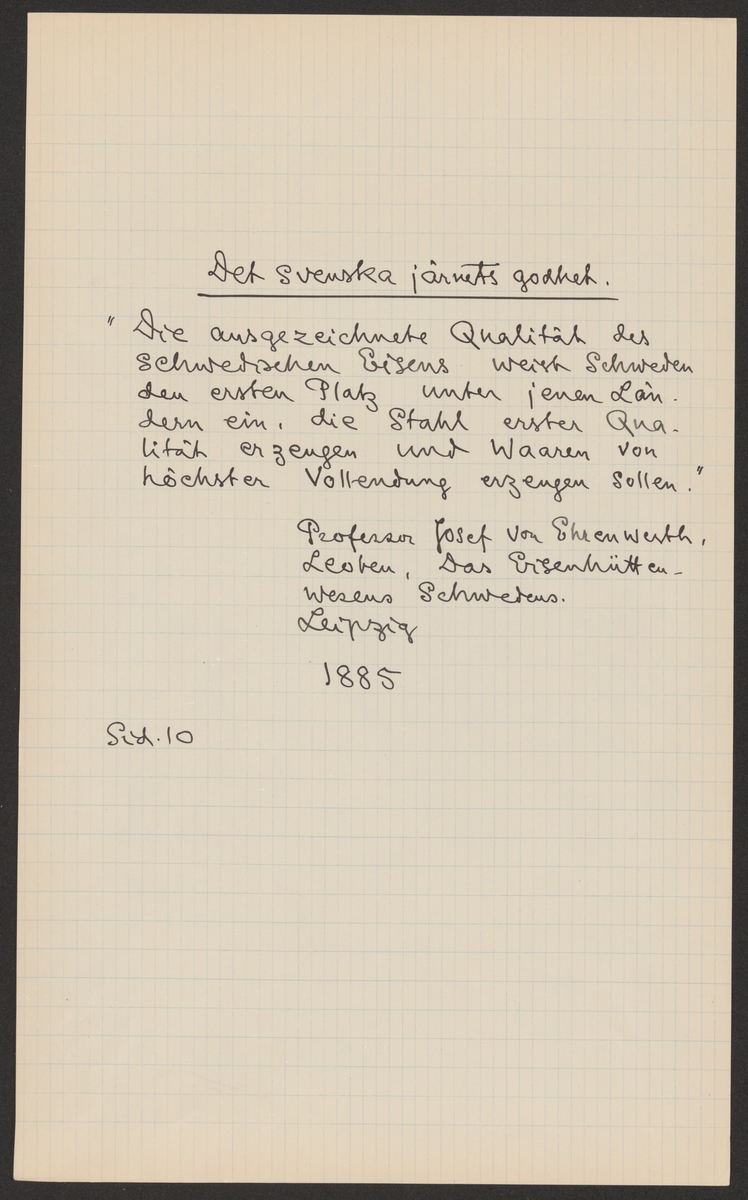 Det svenska järnets godhet.
" Die ausgezeichnete Qualität des
schwedischen Eisens weist Schweden
den ersten Platz unter jenen Län-
dern ein, die Stahl erster Qua-
lität erzeugen und Waaren von
höchster Vollendung erzeugen sollen."
Professor Josef von Ehrenwerth,
Leoben, Das Eisenhütten-
wesens Schwedens.
Leipzig
1885
Sid. 10